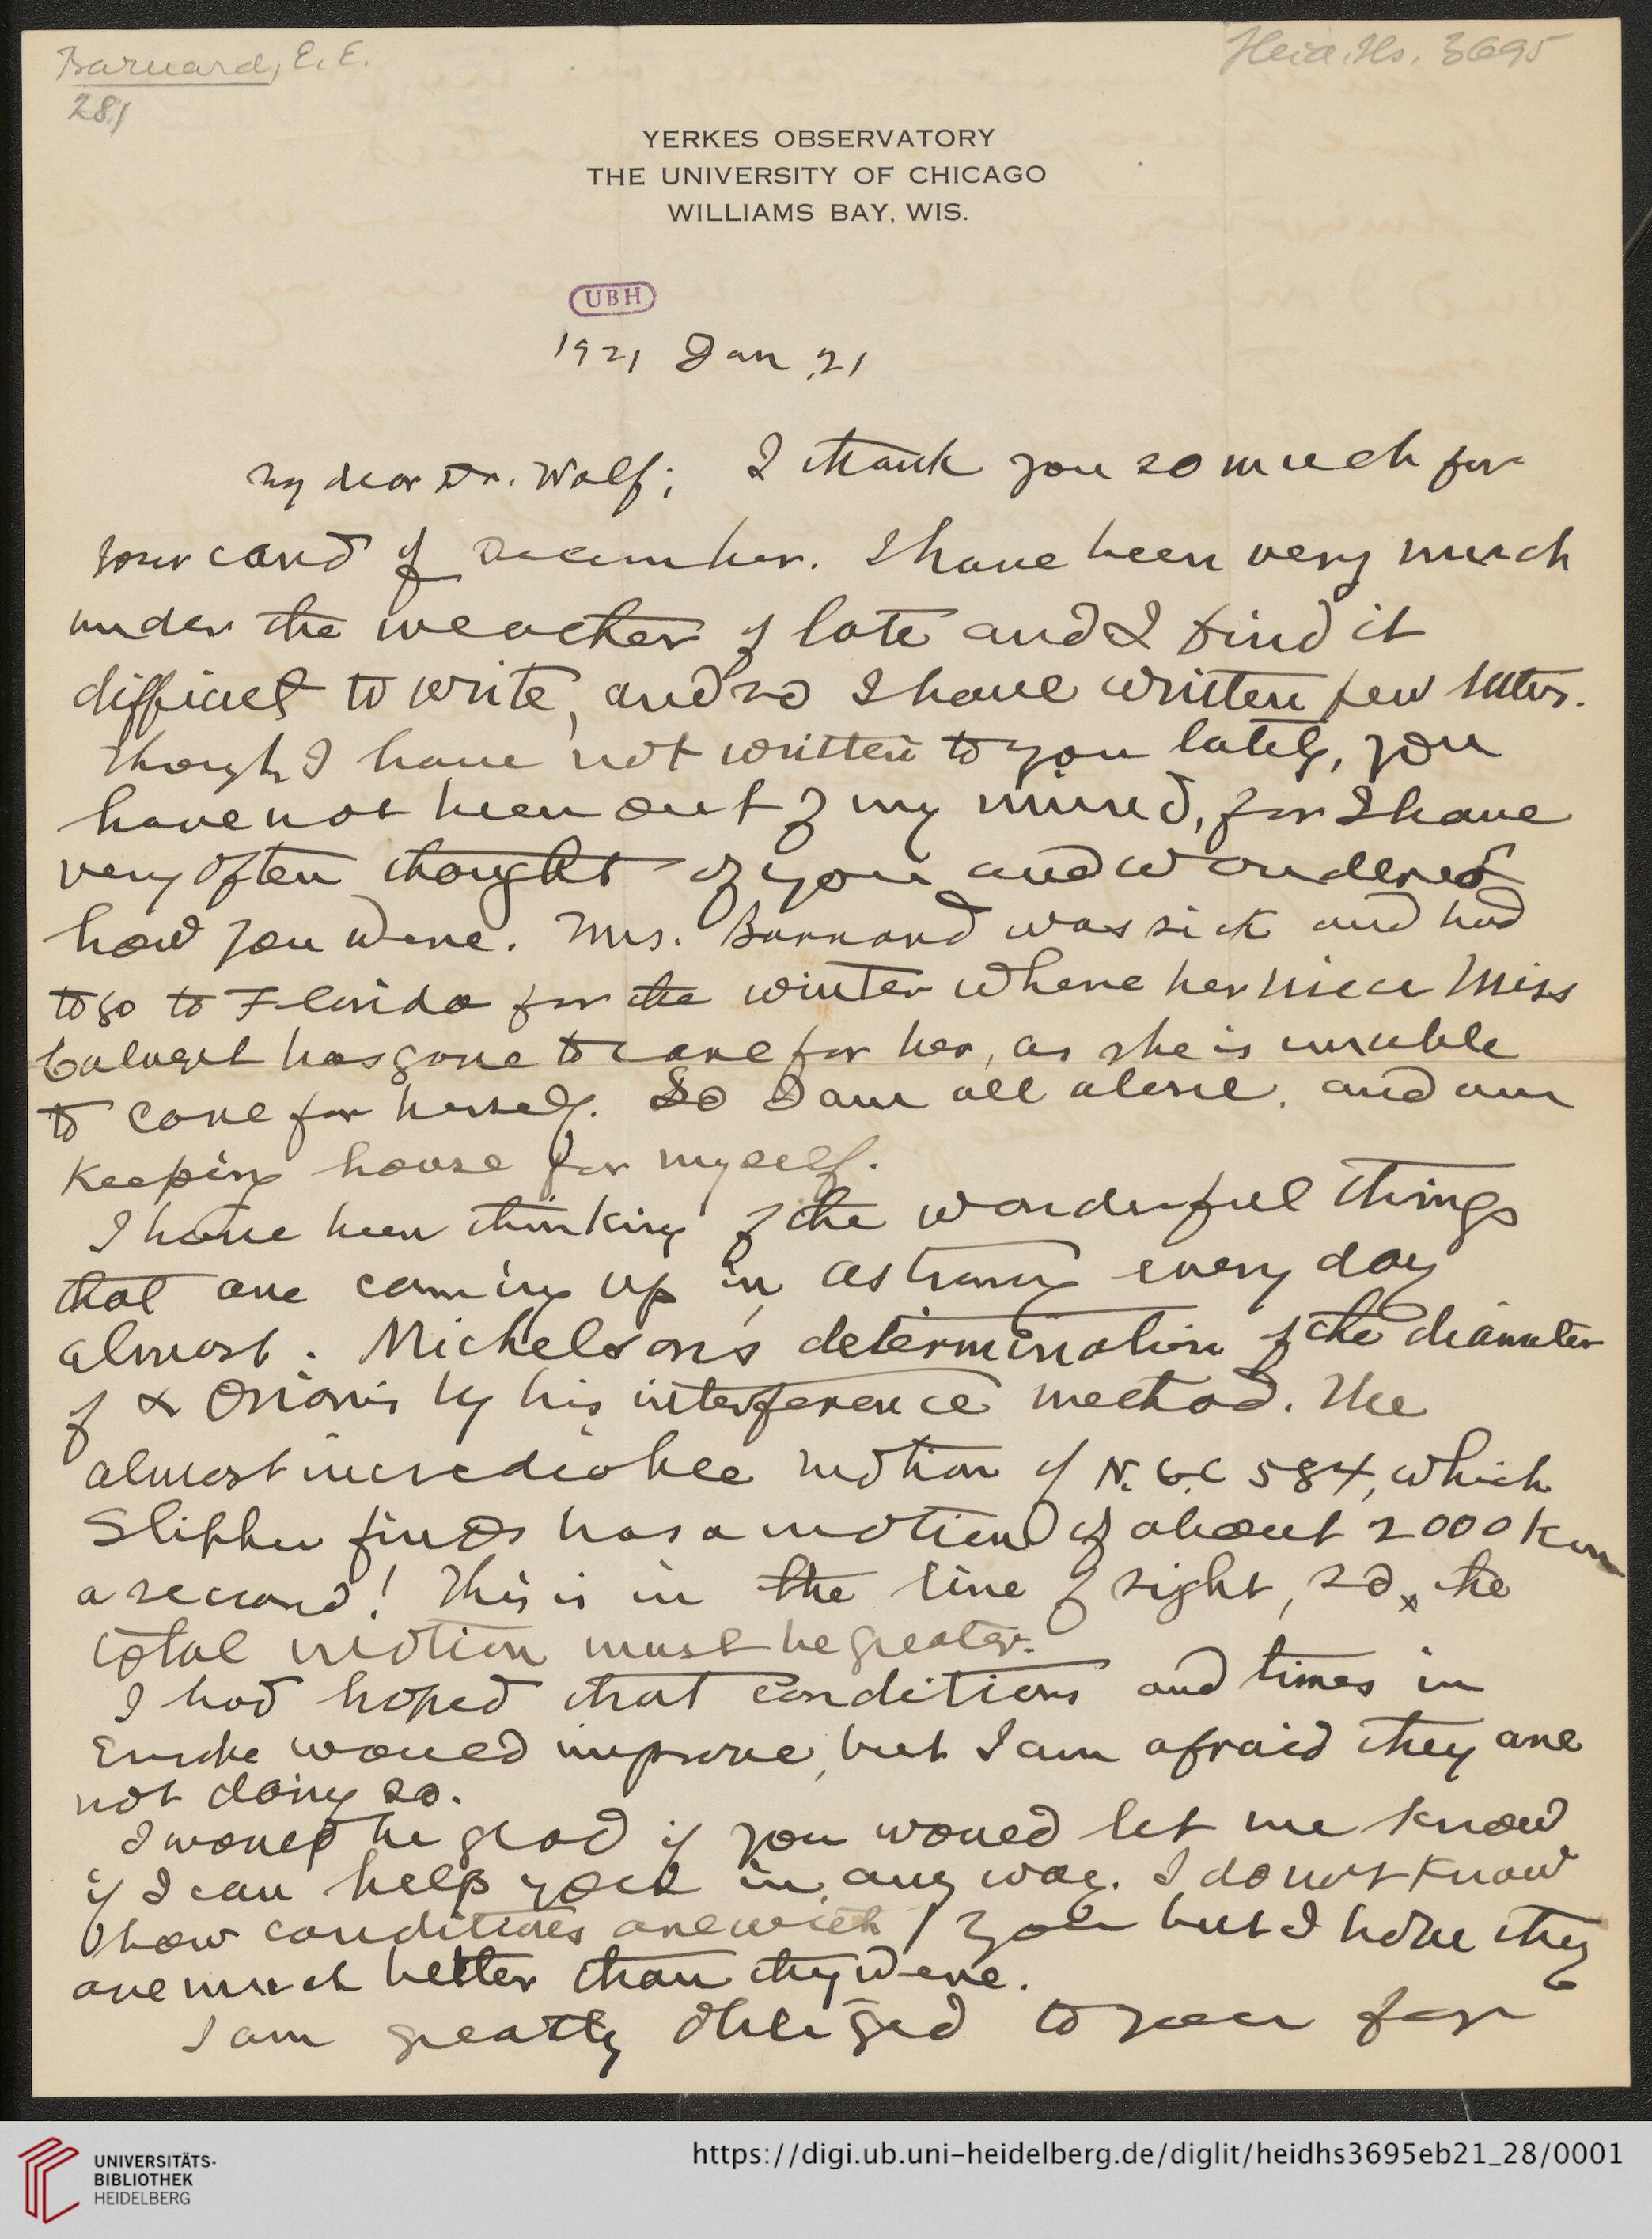 Barnard, E. E.
Heid. Hs. 3695
28.1
YERKES OBSERVATORY
THE UNIVERSITY OF CHICAGO
WILLIAMS BAY, WIS.
UBH
1921 Jan 21
My dear Dr. Wolf; I thank you so much for
your card of December. I have been very much
under the weather of late and I find it
difficult to write, and so I have written few letters.
Though I have not written to you lately, you
have not been out of my mind, for I have
very often thought of you and wondered
how you were. Mrs. Barnard was sick and had
to go to Florida for the winter where her niece Miss
Calvert has gone to care for her, as she is unable
to care for herself. So I am all alone, and am
keeping house for myself.
I have been thinking of the wonderful things
that are coming up in astronomy every day
almost. Michelson's determination of the diameter
of α Orionis by his interference method. The
almost incredible motion of N.G.C 584, which
Slipher finds has a motion of about 2000 Km
a second! This is in the line of sight, so x the
total motion must be greater.
I had hoped that conditions and times in
Europe would improve, but I am afraid they are
not doing so.
I would be glad if you would let me know
if I can help you in any way. I do not know
how conditions are with you but I hope they
are much better than they were.
I am greatly obliged to you for
UNIVERSITÄTS-
BIBLIOTHEK
HEIDELBERG
https://digi.ub.uni-heidelberg.de/diglit/heidhs3695eb21_28/0001